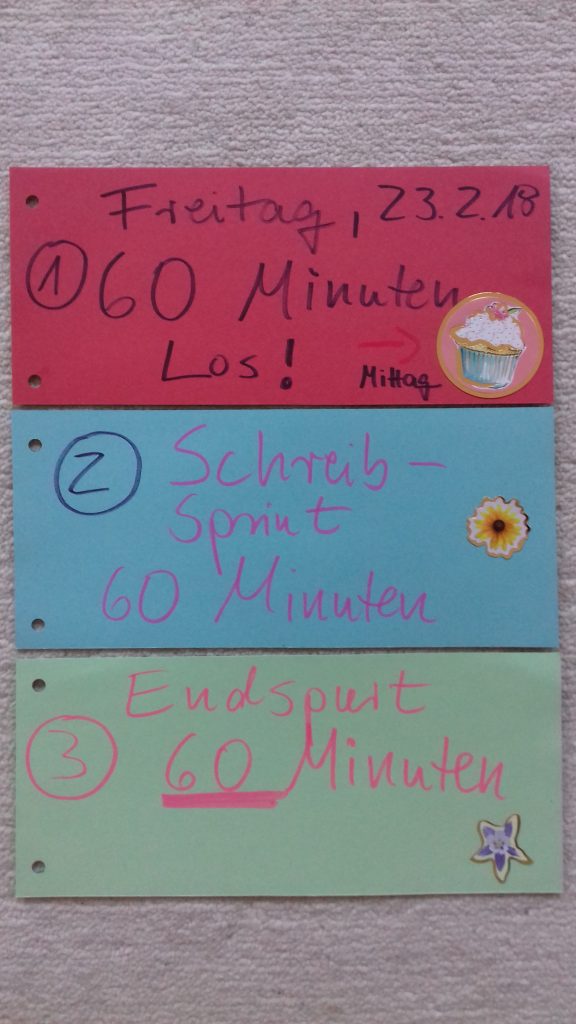 Freitag, 23.2.18
1 60 Minuten
Los! → Mittag
2 Schreib-
Sprint
60 Minuten
Endspurt
3 60 Minuten